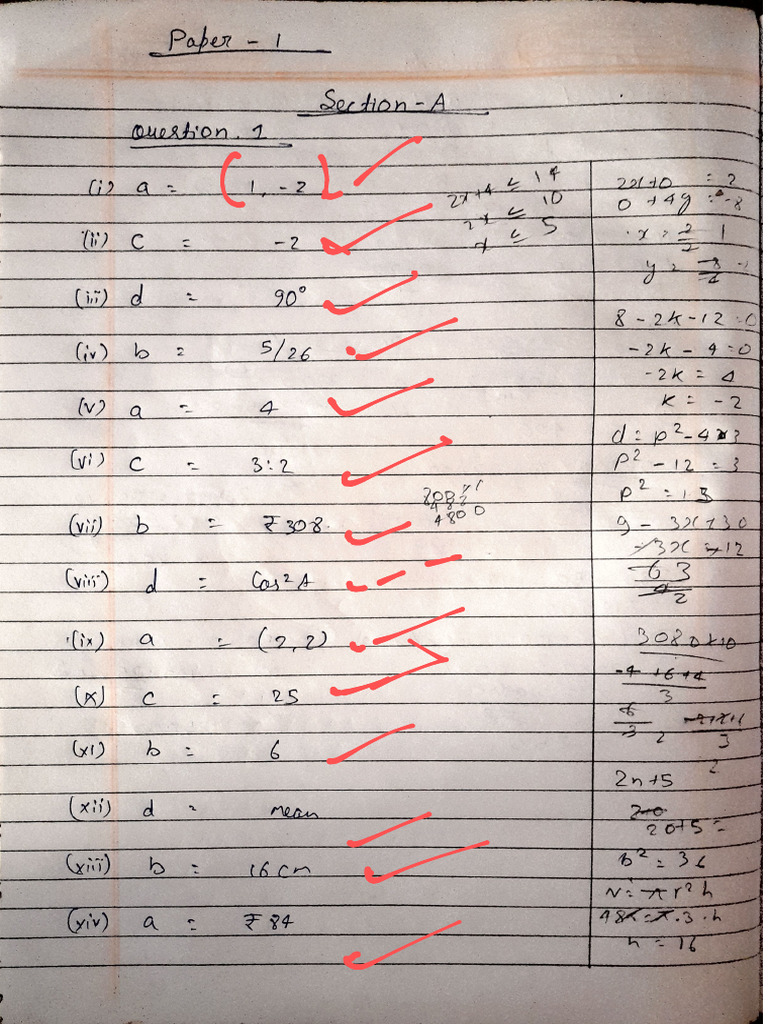 Paper - 1
Section - A
Question. 1
(i) a = (1, -2)
(ii) c = -2
(iii) d = 90°
(iv) b = 5/26
(v) a = 4
(vi) c = 3:2
(vii) b = ₹308.
(viii) d = Cos²A
(ix) a = (2,2)
(x) c = 25
(xi) b = 6
(xii) d = mean
(xiii) b = 16 cm
(xiv) a = ₹84
2x+4 ≤ 14
2x ≤ 10
x ≤ 5
4800
2x+0 = 2
0 + 4y = -8
x = 2/2 1
y = -8/4
8 - 2k - 12 = 0
-2k - 4 = 0
-2k = 4
k = -2
d = p² - 4×3
p² - 12 = 3
p² = 15
9 - 3x + 30
-3x = -12
63
2
3080×10
-4 + 6 + 4
3
6/3 2
3
2
2n+5
20+5 =
b² = 36
V = πr²h
48π = π.3.h
h = 16